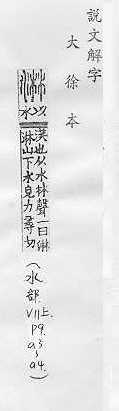 說文解字
大徐本
淋
㠯水
𣵽也从水林聲一曰淋
淋山下水皃力尋切
(水部,VII上,p9.a3~a4.)